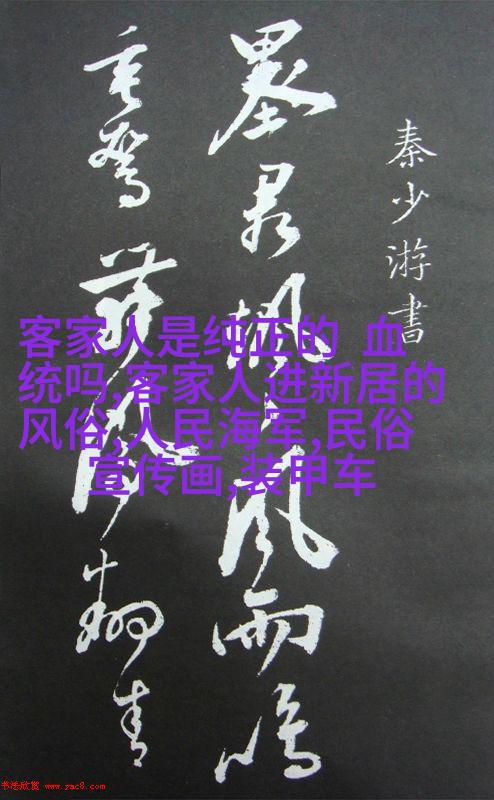 秦少游書
墨君 風雨鳴
舞 翻青
客家人是纯正的 血
统吗,客家人进新居的
风俗,人民海军,民俗
宣传画,装甲车
书法欣赏 www.yac8.com